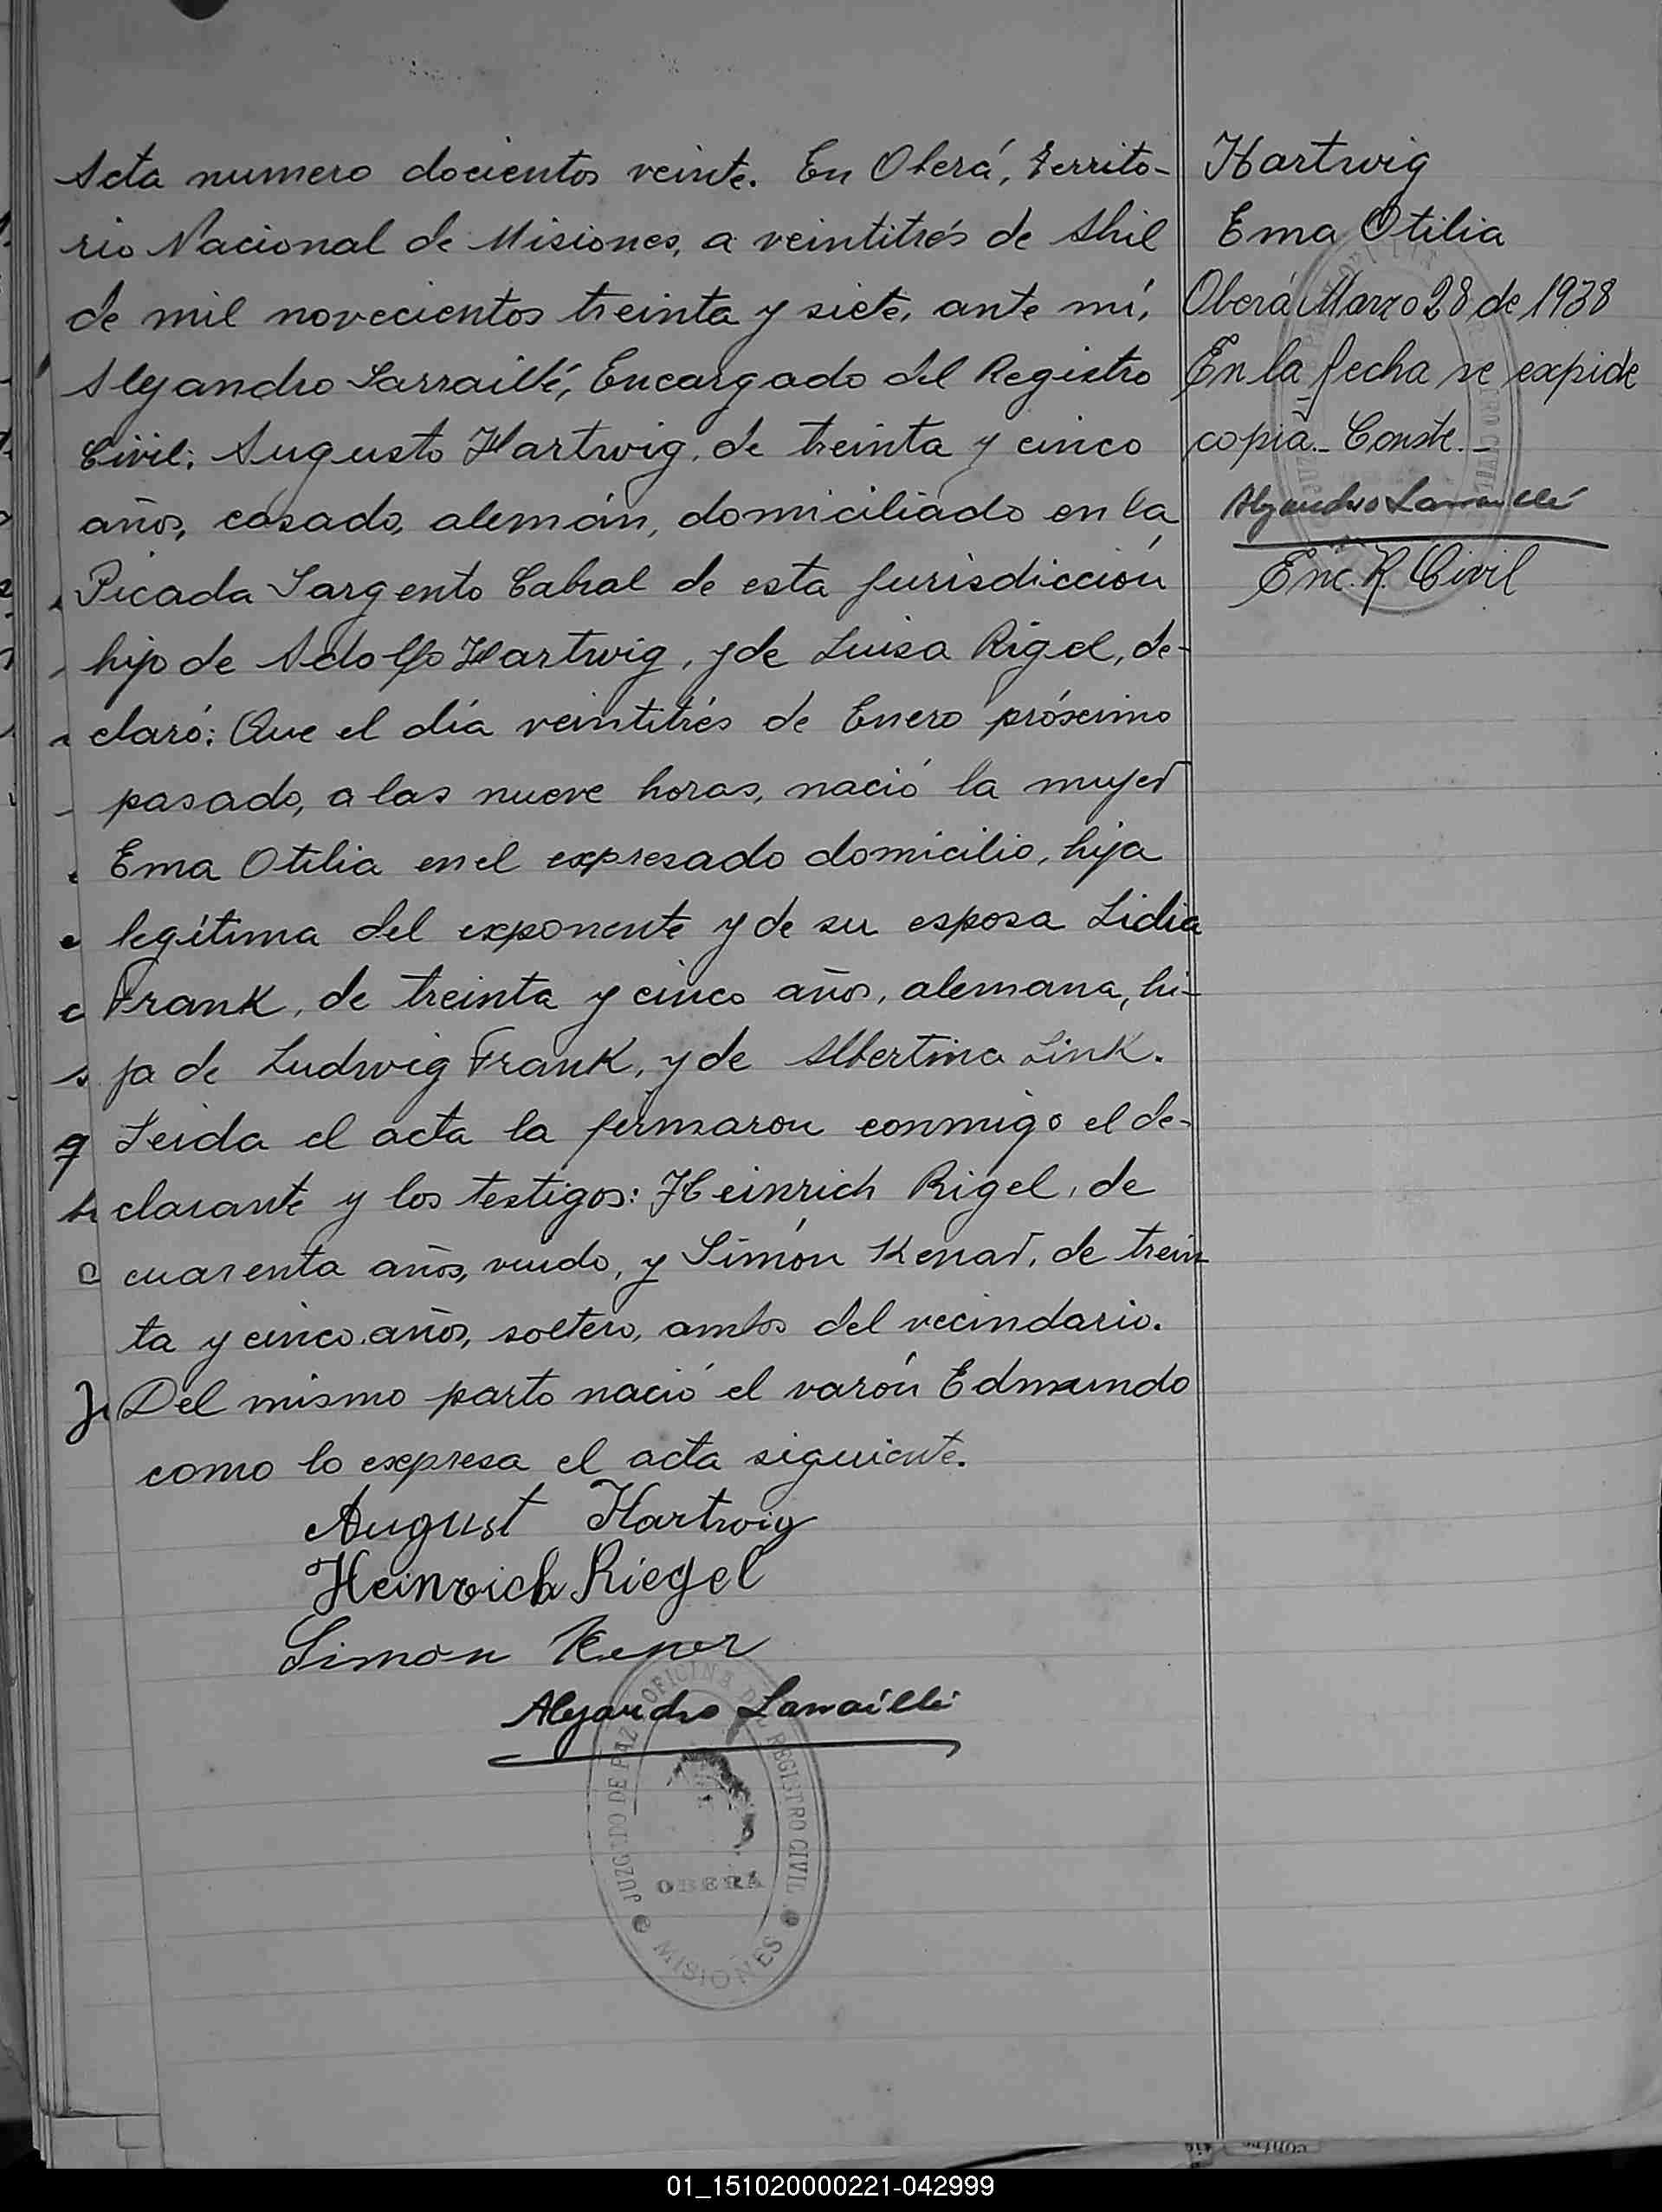 Acta numero docientos veinte. En Oberá, Territo-
rio Nacional de Misiones, a veintitrés de Abril
de mil novecientos treinta y siete, ante mí,
Alejandro Larraillé, Encargado del Registro
Civil: Augusto Hartwig, de treinta y cinco
años, casado, alemán, domiciliado en la
Picada Sargento Cabral de esta jurisdicción
hijo de Adolfo Hartwig, y de Luisa Rigel, de-
claró: Que el día veintitrés de Enero próximo
pasado, a las nueve horas, nació la mujer
Ema Otilia en el expresado domicilio, hija
legítima del exponente y de su esposa Lidia
Frank, de treinta y cinco años, alemana, hi-
ja de Ludwig Frank, y de Albertina Link.
Leida el acta la firmaron conmigo el de-
clarante y los testigos: Heinrich Rigel, de
cuarenta años, viudo, y Simón Kenar, de trein
ta y cinco años, soltero, ambos del vecindario.
Del mismo parto nació el varón Edmundo
como lo expresa el acta siguiente.
August Hartwig
Heinrich Riegel
Simon Kener
Alejandro Larraillé
JUZGADO DE PAZ OFICINA DEL REGISTRO CIVIL
OBERÁ
MISIONES
Hartwig
Ema Otilia
Oberá Marzo 28 de 1938
En la fecha se expide
copia.- Conste.-
Alejandro Larraillé
Enc. R. Civil
01_151020000221-042999